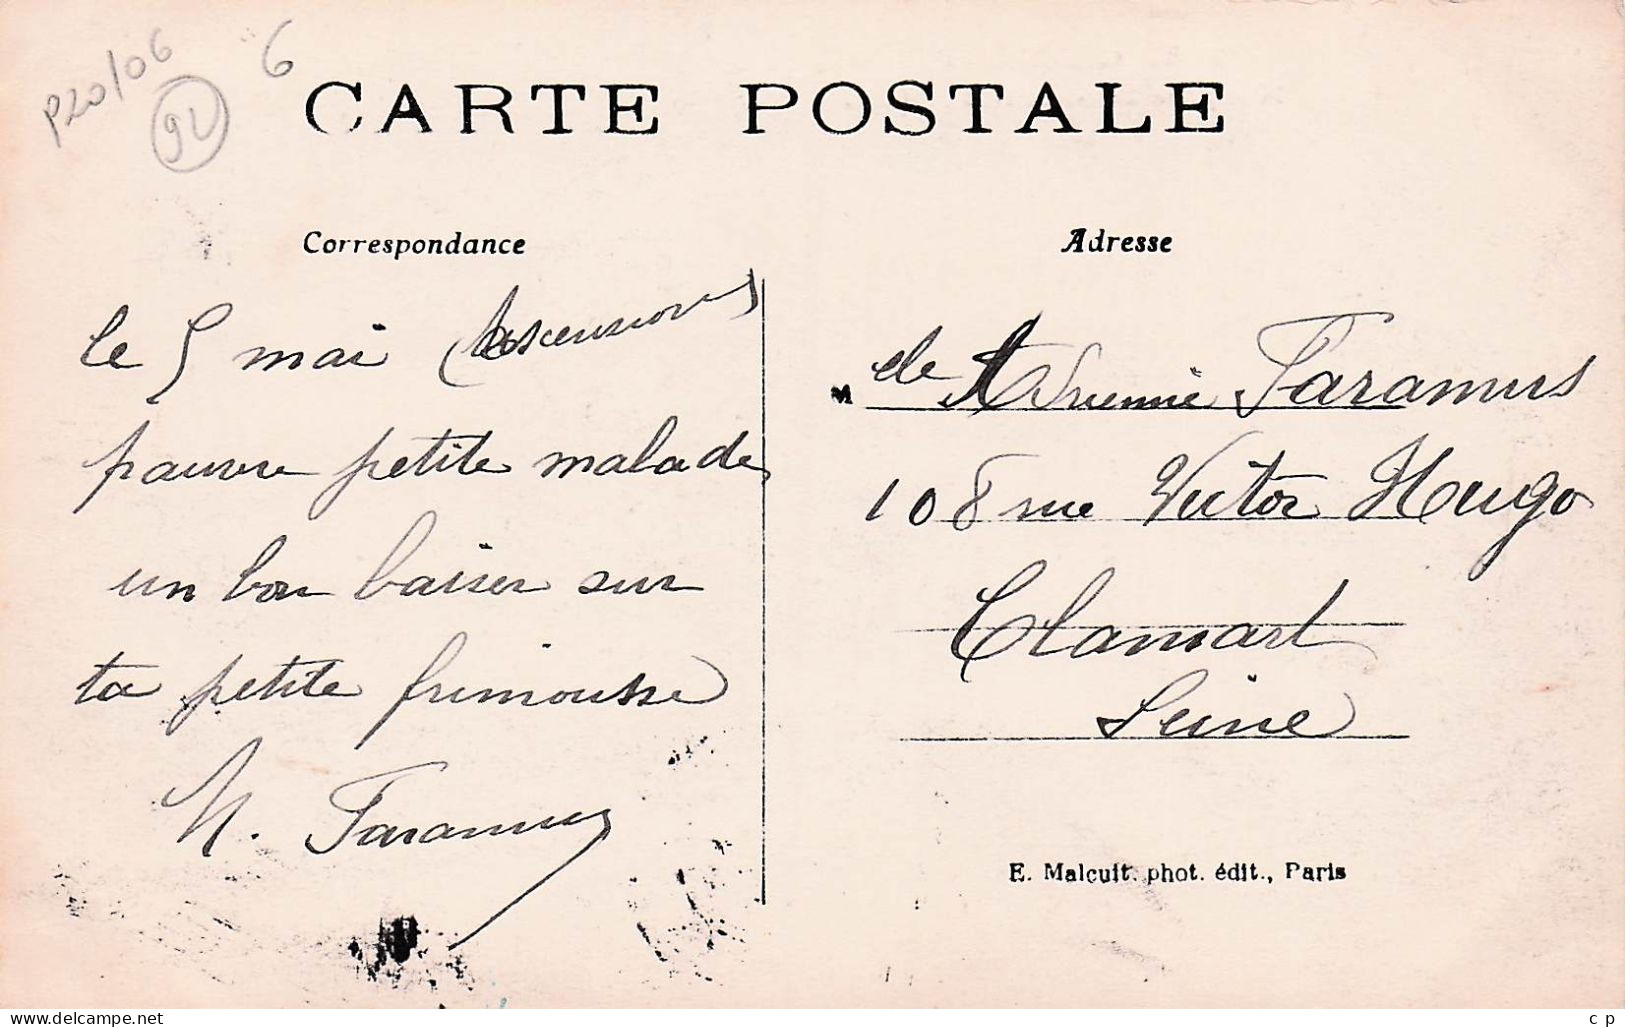 P20/06
92
6
CARTE POSTALE
Correspondance
le 5 mai (Ascension)
pauvre petite malade
un bon baiser sur
ta petite frimousse
Taramus
Adresse
Melle Adrienne Taramus
108 rue Victor Hugo
Clamart
Seine
E. Malcuit. phot. édit., Paris
www.delcampe.net
c p